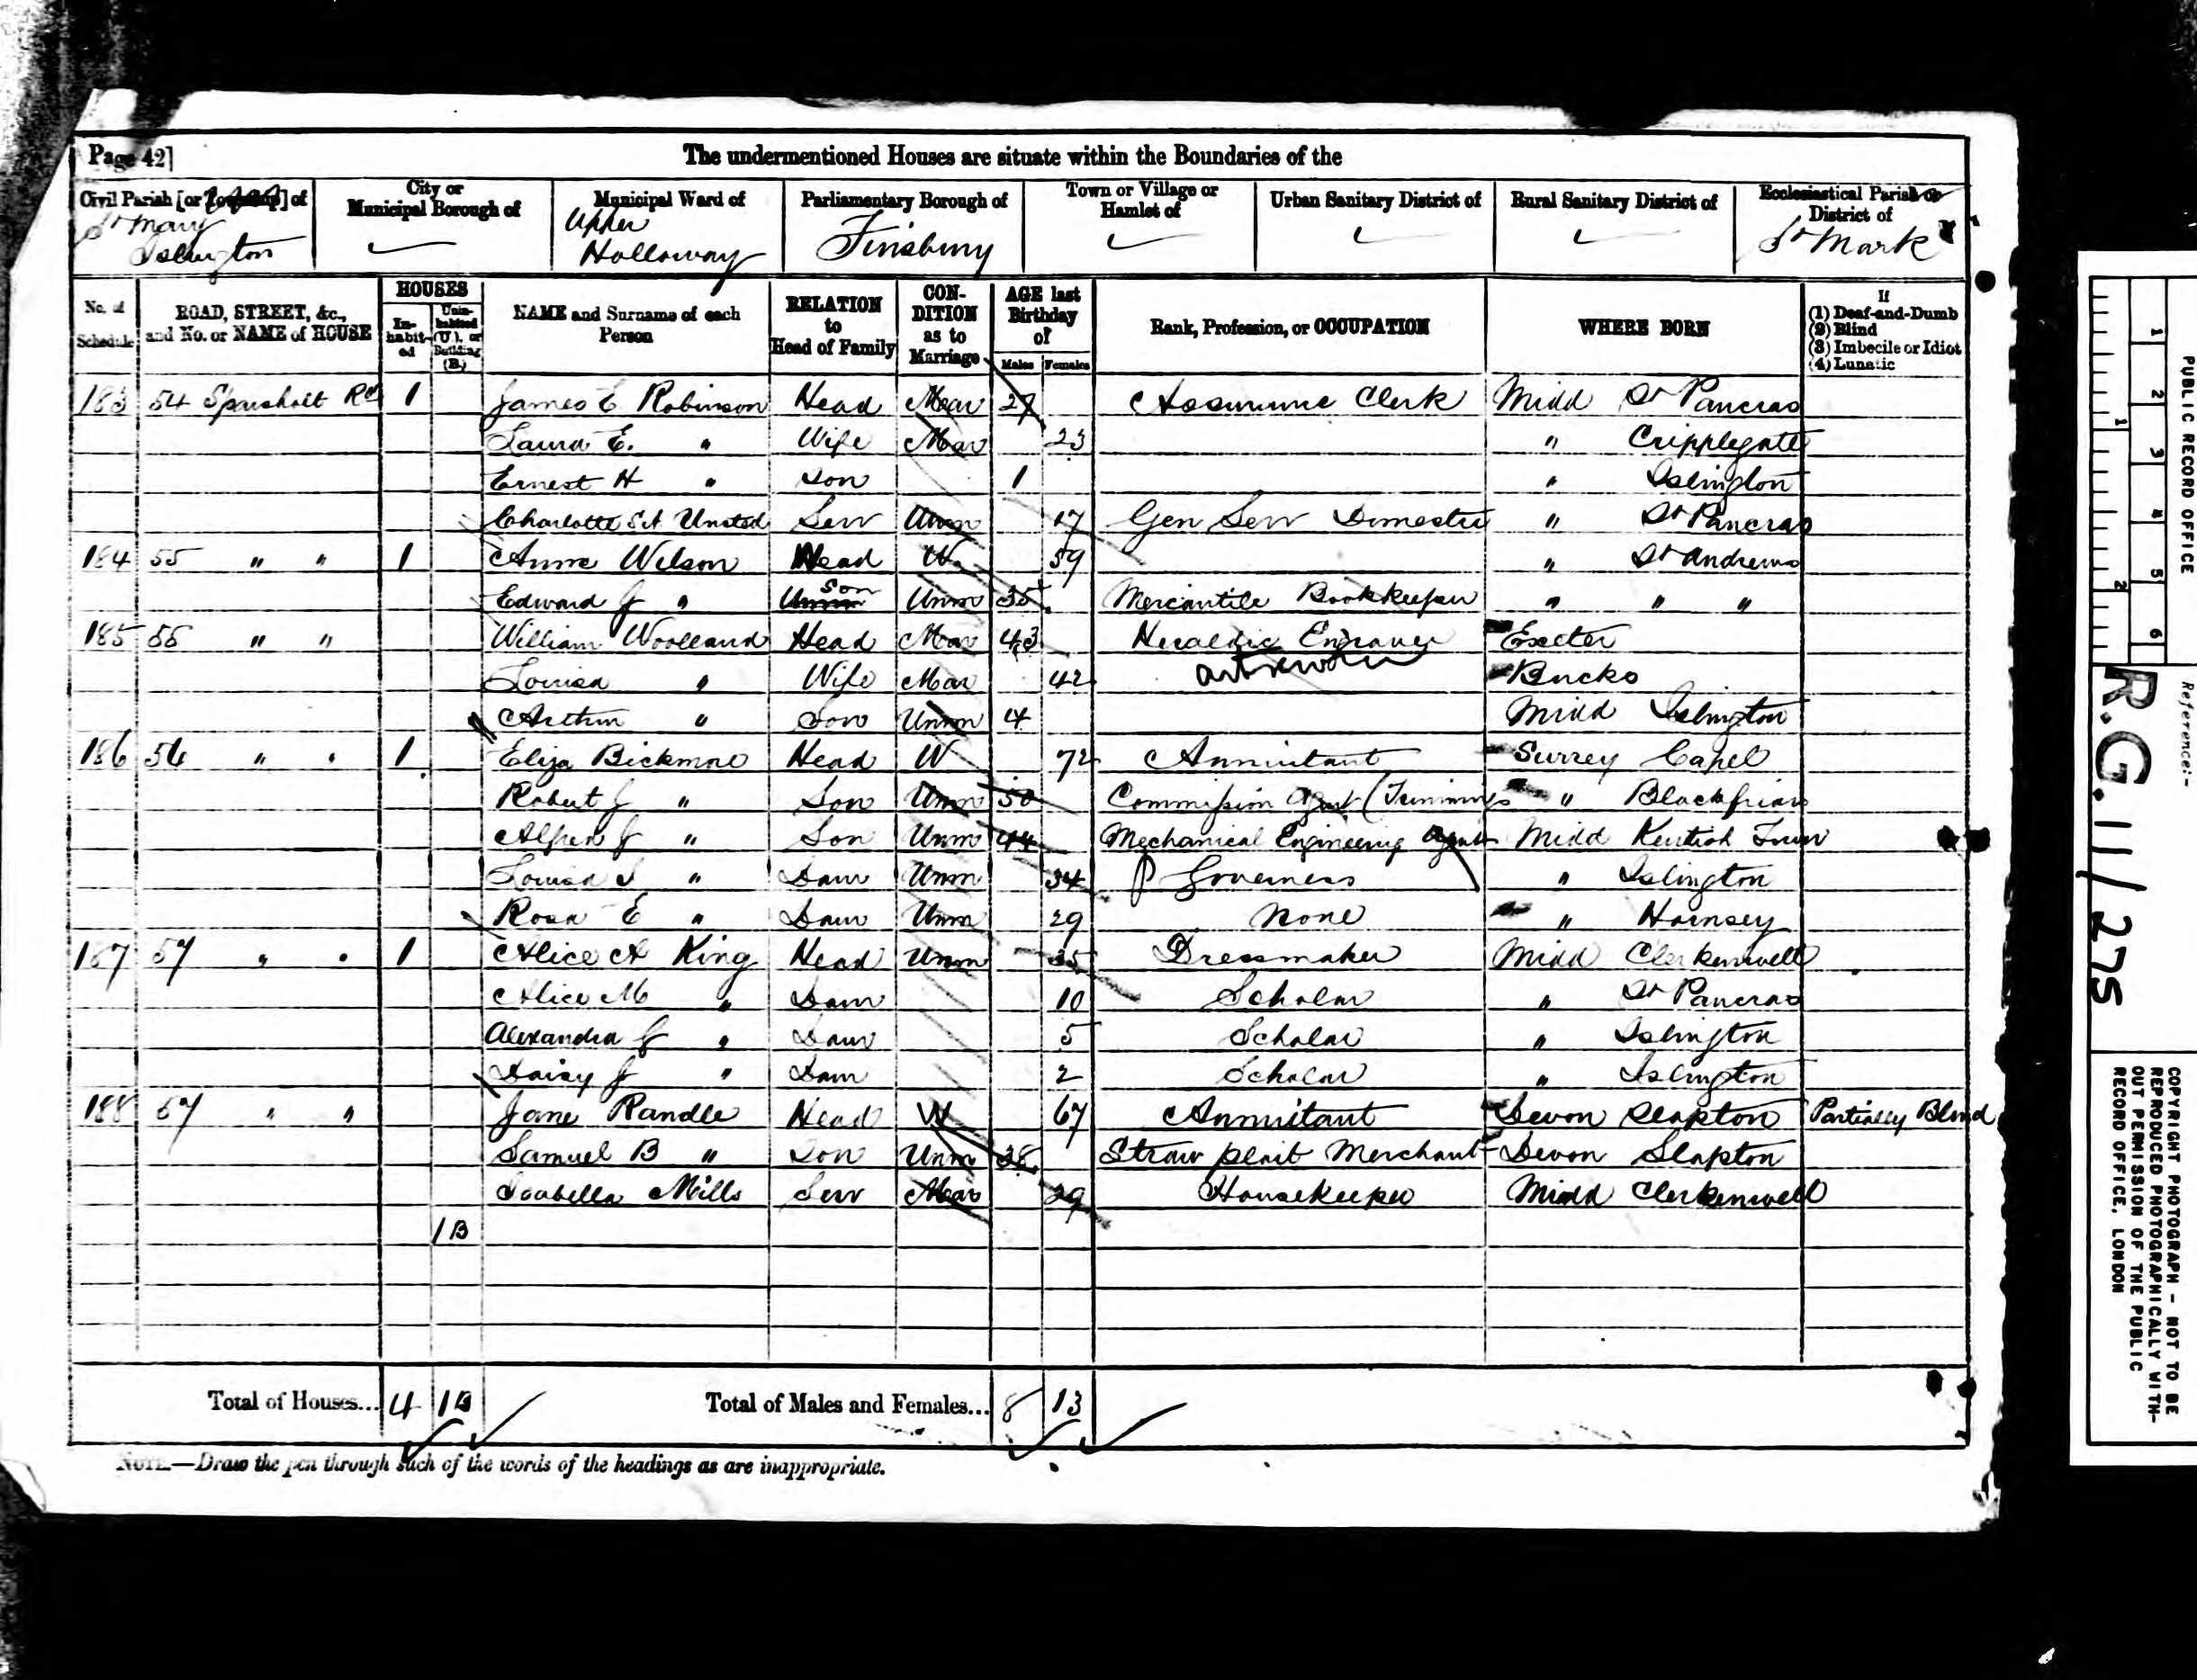 Page 42]
The undermentioned Houses are situate within the Boundaries of the
Civil Parish [or Township] of
St Mary
Islington
City or
Municipal Borough of
Municipal Ward of
Upper
Holloway
Parliamentary Borough of
Finsbury
Town or Village or
Hamlet of
Urban Sanitary District of
Rural Sanitary District of
Ecclesiastical Parish or
District of
St Mark
No. of
Schedule
ROAD, STREET, &c.,
and No. or NAME of HOUSE
HOUSES
In-
habit-
ed
Unin-
habited
(U.), or
Building
(B.)
NAME and Surname of each
Person
RELATION
to
Head of Family
CON-
DITION
as to
Marriage
AGE last
Birthday
of
Males Females
Rank, Profession, or OCCUPATION
WHERE BORN
If
(1) Deaf-and-Dumb
(2) Blind
(3) Imbecile or Idiot
(4) Lunatic
183 54 Sparsholt Rd 1 James E Robinson Head Mar 27 Assurance Clerk Midd St Pancras
Laura E. " Wife Mar 23 " Cripplegate
Ernest H " Son 1 " Islington
Charlotte S A Unsted Serv Unm 17 Gen Serv Domestic " St Pancras
184 55 " " 1 Anne Wilson Head W. 59 " St Andrews
Edward J " Son Unm 35 Mercantile Bookkeeper " " "
185 55 " " William Woolland Head Mar 43 Heraldic Engraver Exeter
Louisa " Wife Mar 42 Bucks
Arthur " Son Unm 4 Midd Islington
186 56 " " 1 Eliza Bickmore Head W 72 Annuitant Surrey Capel
Robert J " Son Unm 50 Commission Agent (Trimmings " Blackfriars
Alfred J " Son Unm 44 Mechanical Engineering Agent Midd Kentish Town
Louisa S " Daur Unm 34 Governess " Islington
Rosa E " Daur Unm 29 None " Hornsey
187 57 " " 1 Alice A King Head Unm 35 Dressmaker Midd Clerkenwell
Alice M " Daur 10 Scholar " St Pancras
Alexandra J " Daur 5 Scholar " Islington
Daisy J " Daur 2 Scholar " Islington
188 57 " " Jane Randle Head W 67 Annuitant Devon Slapton Partially Blind
Samuel B " Son Unm 38 Straw plait Merchant Devon Slapton
Isabella Mills Serv Mar 29 Housekeeper Midd Clerkenwell
1B
Total of Houses... 4 1B Total of Males and Females... 8 13
NOTE.—Draw the pen through such of the words of the headings as are inappropriate.
PUBLIC RECORD OFFICE
1 2 3 4 5 6
1 2
Reference:-
R.G. 11/275
COPYRIGHT PHOTOGRAPH - NOT TO BE
REPRODUCED PHOTOGRAPHICALLY WITH-
OUT PERMISSION OF THE PUBLIC
RECORD OFFICE, LONDON